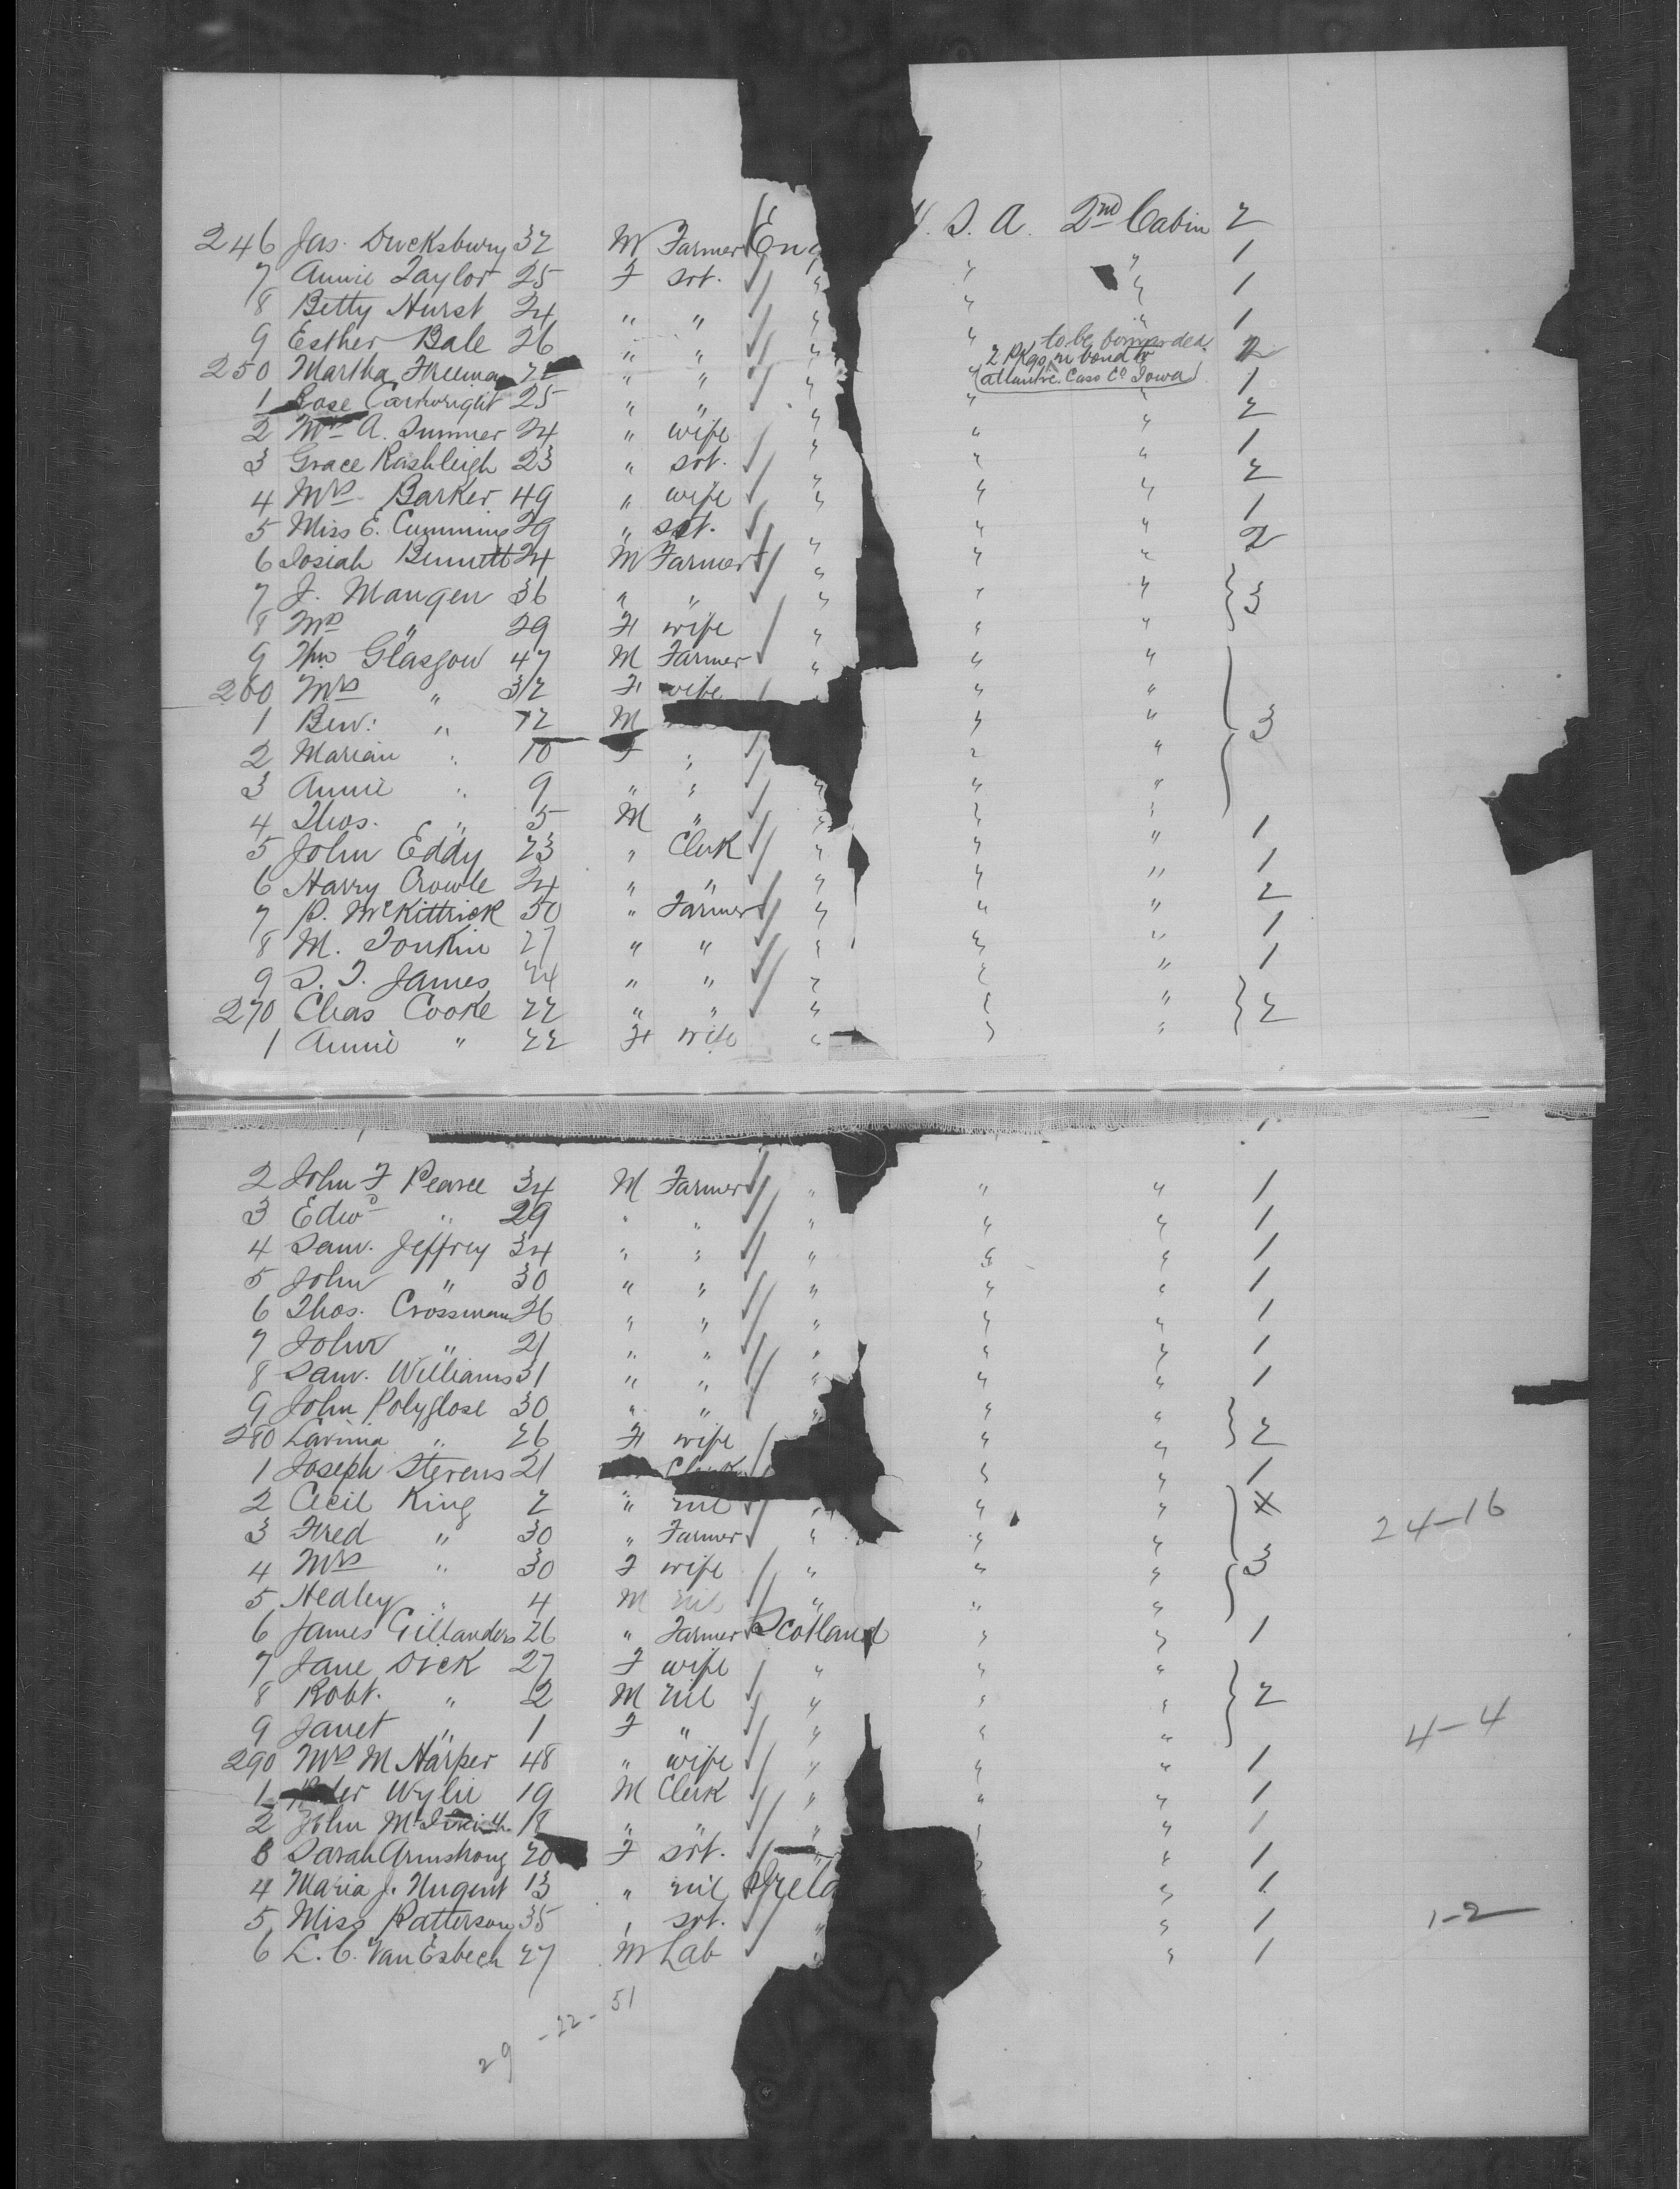 246 Jas. Ducksbury 32 M Farmer Eng U. S. A. 2nd Cabin 2
7 Annie Taylor 25 F svt. " " " 1
8 Betty Hurst 24 " " " " " 1
9 Esther Bale 26 " " " " " 1
to be forwarded
250 Martha Freeman 22 " " " " 2 Pkgs in bond to 2
(Atlantic. Cass Co Iowa)
1 Rose Cartwright 25 " " " " " 1
2 Mrs A. Sumner 24 " wife " " " 2
3 Grace Rashleigh 23 " svt. " " " 1
4 Mrs Barker 49 " wife " " " 2
5 Miss E. Cumming 29 " svt. " " " 1
6 Josiah Bennett 24 M Farmer " " " 2
7 J. Mangen 36 " " " " " } 3
8 Mrs " 29 F wife " " "
9 Wm Glasgow 47 M Farmer " " "
260 Mrs " 32 F wife " " "
1 Benj: " 12 M " " } 3
2 Marian " 10 F " " "
3 Annie " 9 " " " " "
4 Thos. " 5 M " " " "
5 John Eddy 23 " Clerk " " " 1
6 Harry Crowle 24 " " " " " 1
7 P. McKittrick 50 " Farmer " " " 2
8 M. Tonkin 27 " " " " " 1
9 S. T. James 24 " " " " " 1
270 Chas Cooke 22 " " " " " } 2
1 Annie " 22 F wife " " "
2 John F Pearce 34 M Farmer " " " 1
3 Edwd " 29 " " " " " 1
4 Saml. Jeffrey 34 " " " " " 1
5 John " 30 " " " " " 1
6 Thos. Crossman 26 " " " " " 1
7 John " 21 " " " " " 1
8 Saml. Williams 31 " " " " " 1
9 John Polyglase 30 " " " " " } 2
280 Lavinia " 26 F wife " "
1 Joseph Stevens 21 Clerk " " 1
2 Cecil King 2 " nil " " " X
3 Fred " 30 " Farmer " " " 24-16
4 Mrs " 30 F wife " " " } 3
5 Hedley " 4 M nil " " "
6 James Gillanders 26 " Farmer Scotland " " 1
7 Jane Dick 27 F wife " " "
8 Robt. " 2 M nil " " " } 2
9 Janet " 1 F " " " " 4-4
290 Mrs M Harper 48 " wife " " " 1
1 Peter Wylie 19 M Clerk " " " 1
2 John 18 " " " " " 1
3 Sarah Armstrong 20 F svt. " " 1
4 Maria J. Nugent 13 " nil Irela " 1
5 Miss Patterson 35 " svt. " " 1 1-2
6 L. C. Van Esbech 27 M Lab " " 1
29 -22- 51